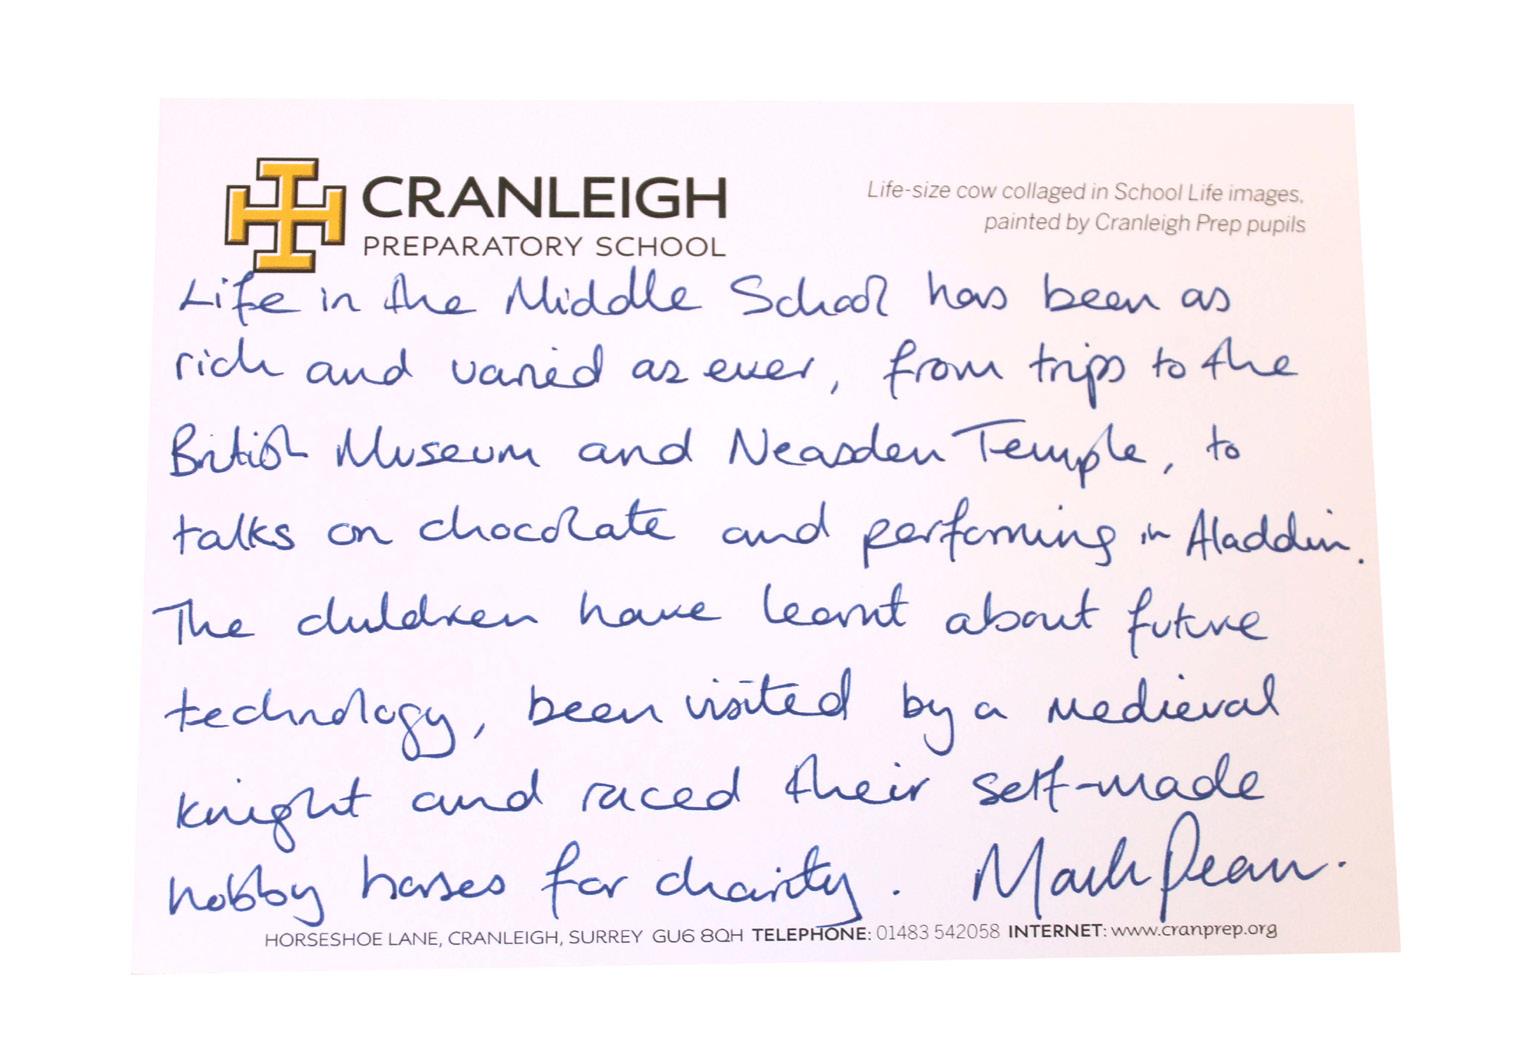 CRANLEIGH
PREPARATORY SCHOOL
Life-size cow collaged in School Life images,
painted by Cranleigh Prep pupils
Life in the Middle School has been as
rich and varied as ever, from trips to the
British Museum and Neasden Temple, to
talks on chocolate and performing in Aladdin.
The children have learnt about future
technology, been visited by a medieval
knight and raced their self-made
hobby horses for charity. Mark Dean.
HORSESHOE LANE, CRANLEIGH, SURREY GU6 8QH TELEPHONE: 01483 542058 INTERNET: www.cranprep.org